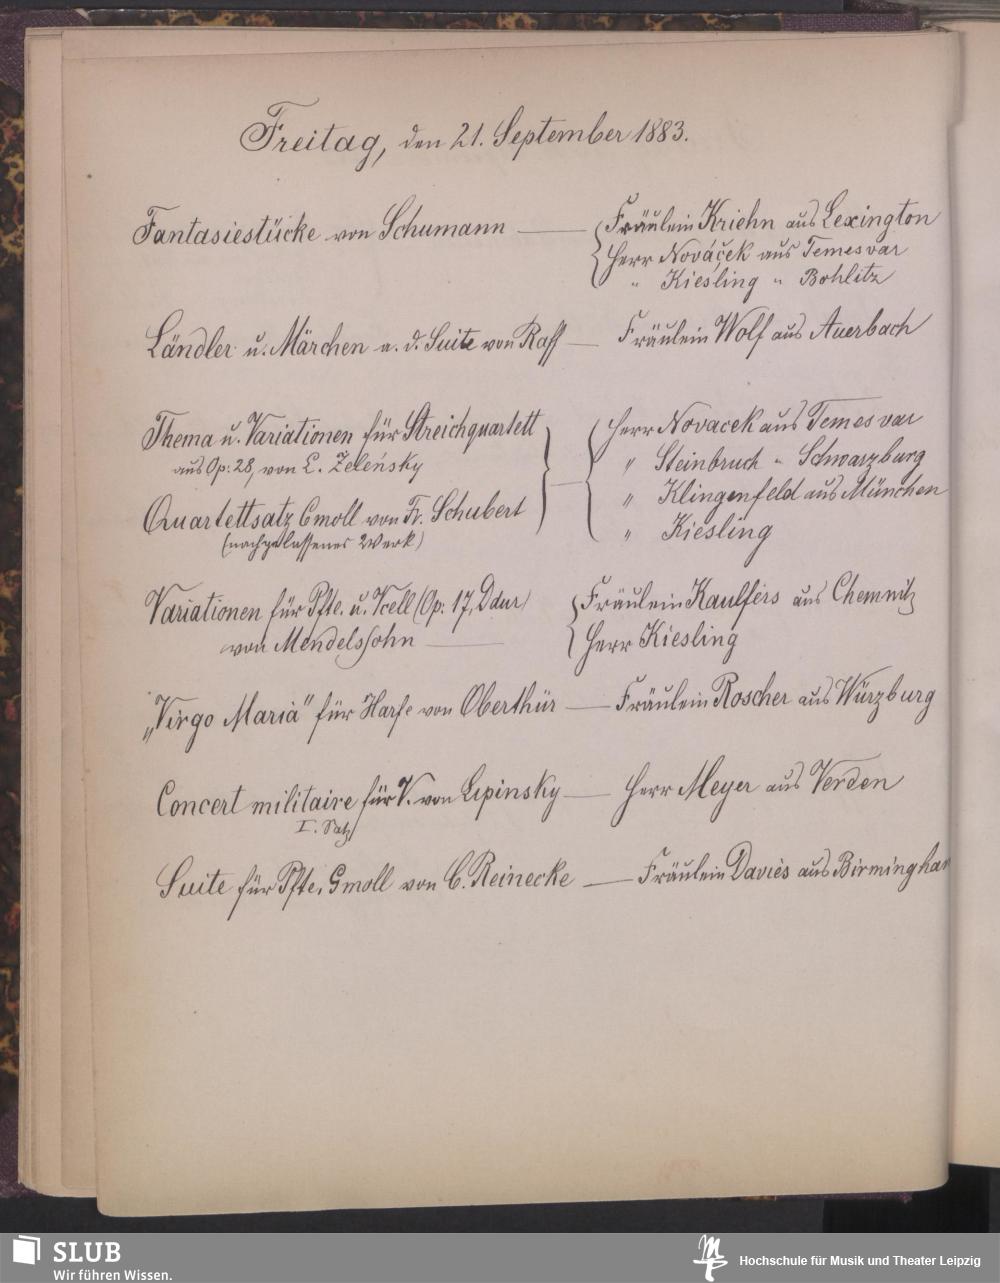 Freitag, den 21. September 1883.
Fantasiestücke von Schumann — Fräulein Kriehn aus Lexington
Herr Nováček aus Temesvar
" Kiesling " Bohlitz
Ländler u. Märchen a. d. Suite von Raff — Fräulein Wolf aus Auerbach
Thema u. Variationen für Streichquartett
aus Op: 28, von L. Zeleńsky
Quartettsatz Cmoll von Fr. Schubert
(nachgelassenes Werk)
Herr Novacek aus Temesvar
" Steinbruch " Schwarzburg
" Klingenfeld aus München
" Kiesling
Variationen für Pfte. u. Vcell (Op: 17, Ddur)
von Mendelssohn —
Fräulein Kaulfers aus Chemnitz
Herr Kiesling
„Virgo Maria" für Harfe von Oberthür — Fräulein Roscher aus Würzburg
Concert militaire für V. von Lipinsky — Herr Meyer aus Verden
I. Satz
Suite für Pfte, Gmoll von C. Reinecke — Fräulein Davies aus Birmingham
SLUB
Wir führen Wissen.
Hochschule für Musik und Theater Leipzig